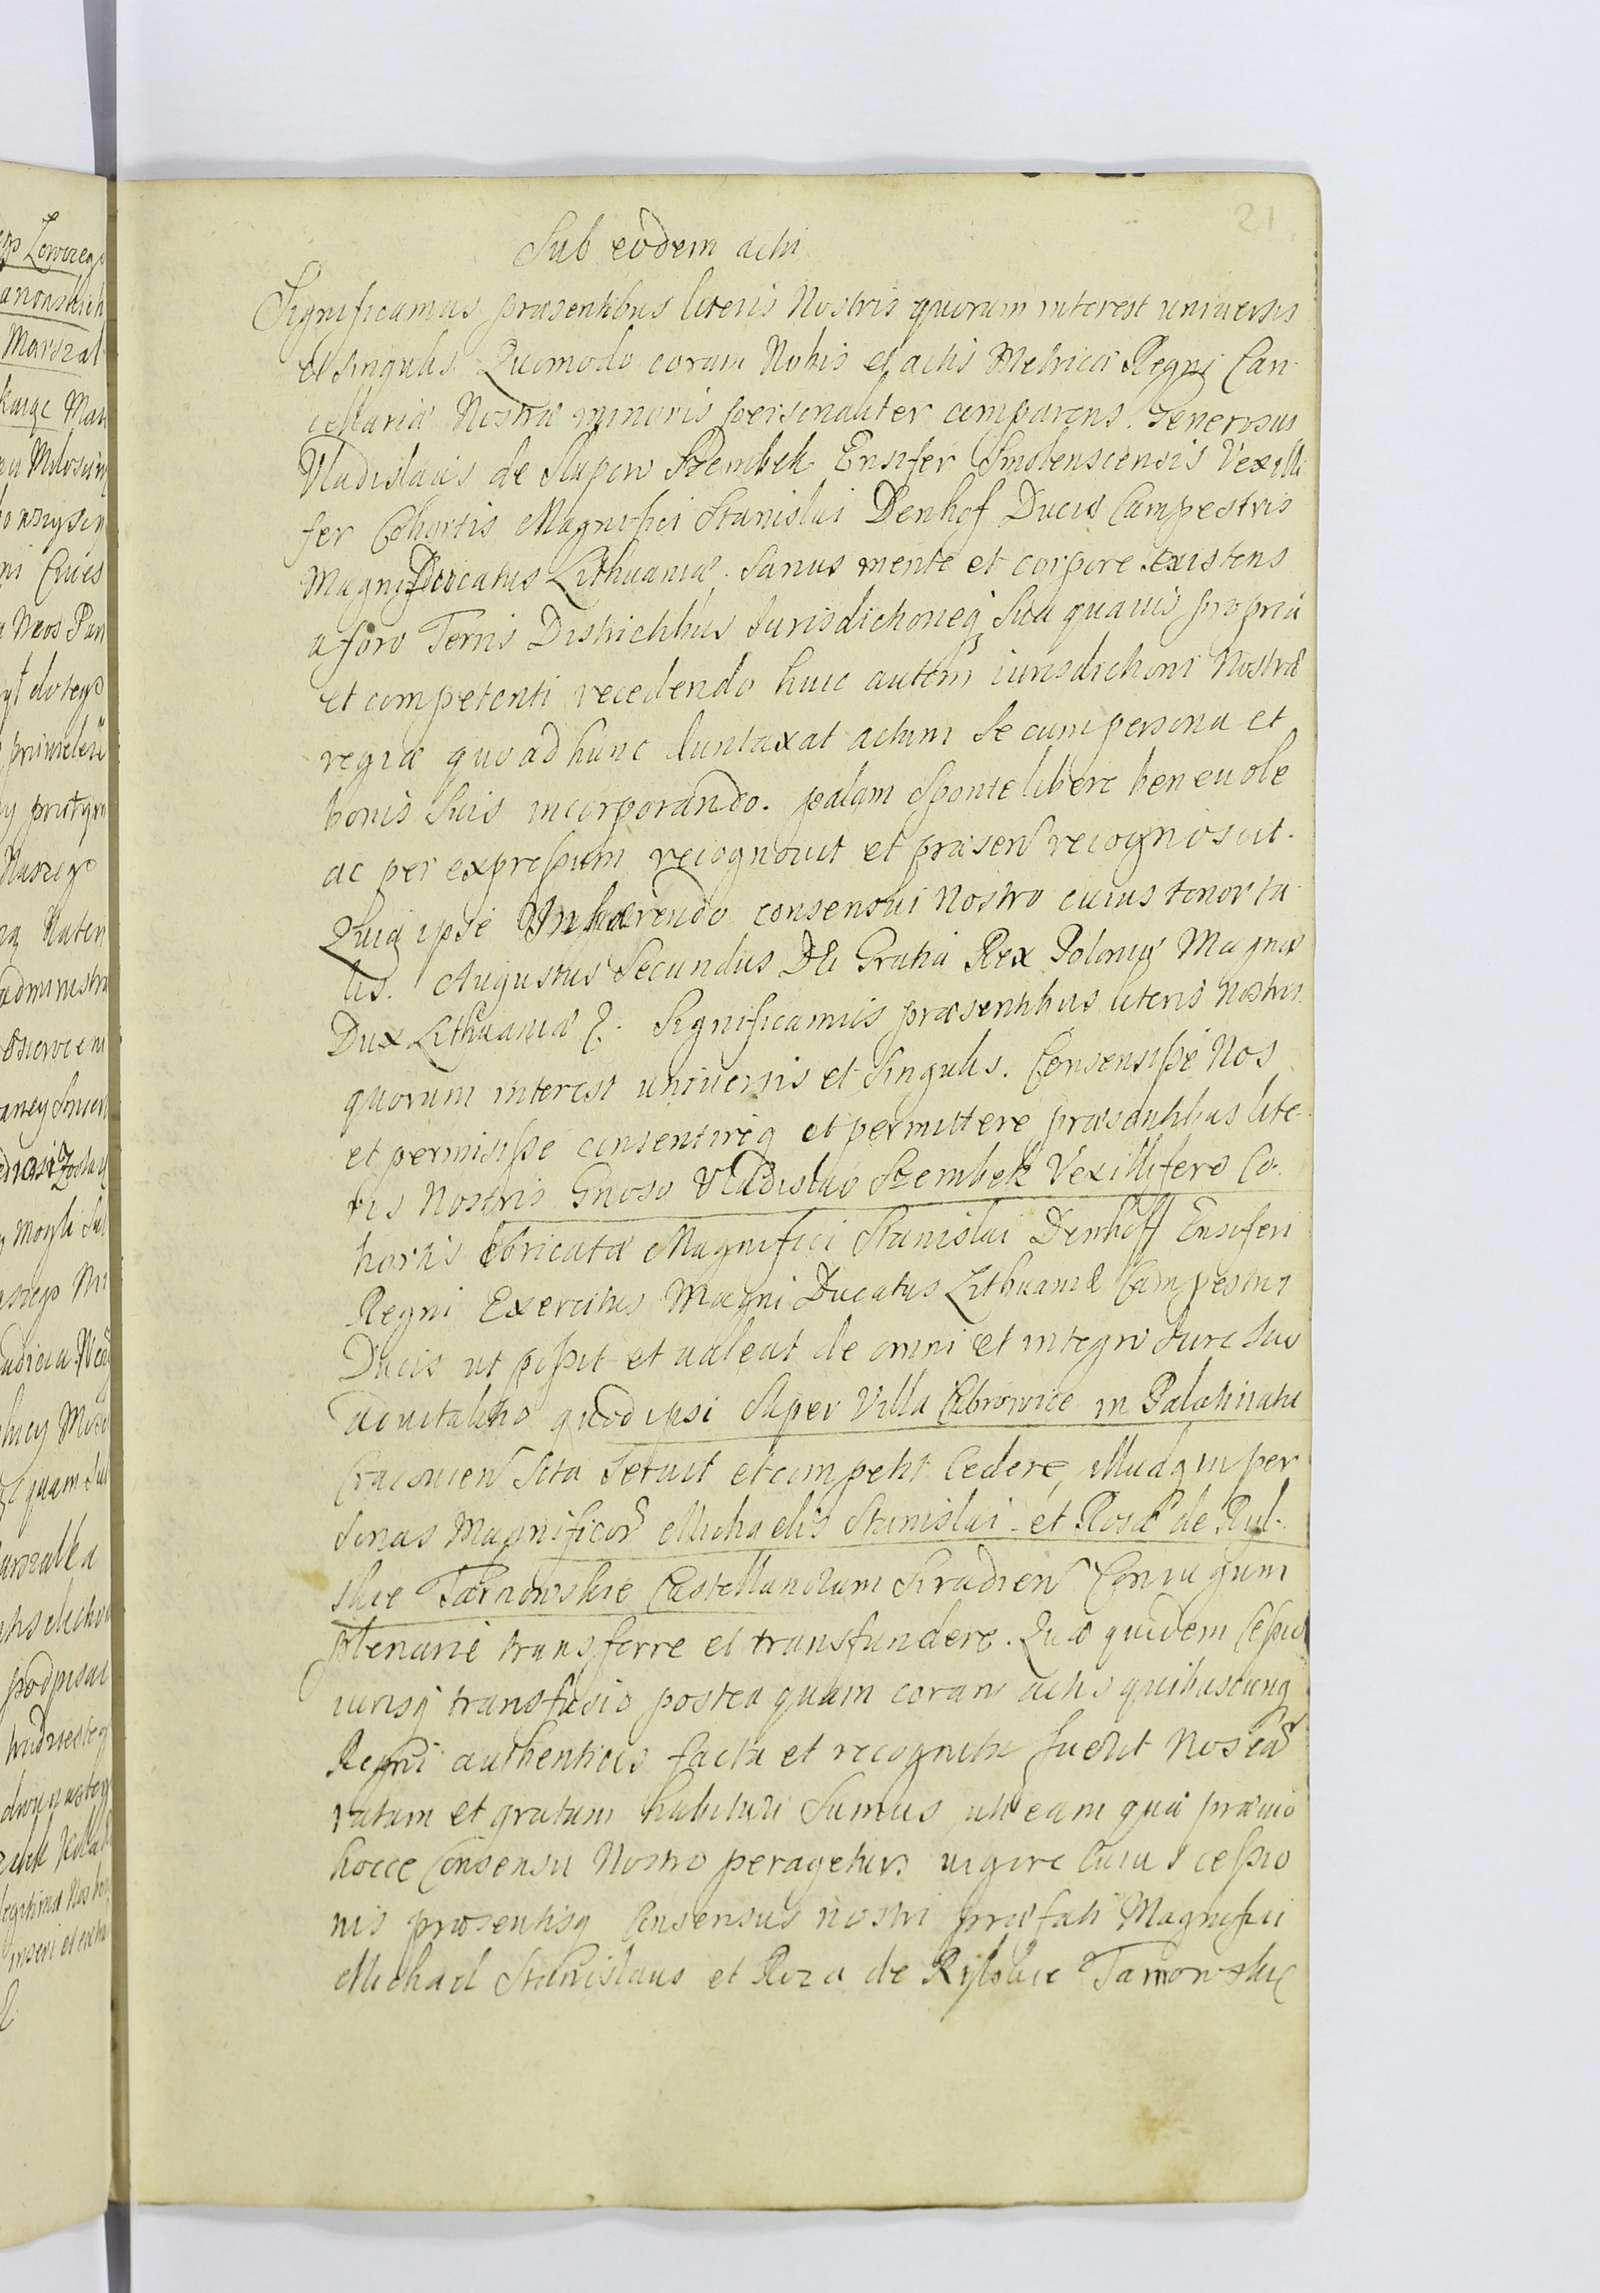 21
Sub eodem actu
Significamus præsentibus literis Nostris quorum interest universis
et singulis. Quomodo coram Nobis et actis Metricæ Regni Can-
cellariæ Nostræ minoris personaliter comparens. Generosus
Vladislaus de Slupow Szembek Ensifer Smolensciensis Vexilli
fer Cohortis Magnifici Stanislai Denhof Ducis Campestris
Magni Ducatus Lithuaniæ. Sanus mente et corpore existens
a foro Terris Districtibus Jurisdictioneq sua quavis propria
et competenti recedendo huic autem iurisdictioni Nostræ
regiæ quo ad hunc duntaxat actum se cum persona et
bonis suis incorporando. palam sponte libere beneuole
ac per expressum recognouit et præsen recognoscit.
Quia ipse Inhærendo consensui Nostro cuius tenor ta-
lis. Augustus Secundus Dei Gratia Rex Poloniæ Magnus
Dux Lithuaniæ &. Significamus præsentibus literis Nostris
quorum interest universis et singulis. Consensisse Nos
et permisisse consentireq et permittere præsentibus lite-
ris Nostris Gnoso Vladislao Szembek Vexillifero Co-
hortis loricatæ Magnifici Stanislai Denhoff Ensiferi
Regni Exercitus Magni Ducatus Lithuaniæ Campestris
Ducis ut possit et ualeat de omni et integro Jure suo
aduitalitio quod ipsi super Villa Cebrowice in Palatinatu
Cracouien sita seruit et competit cedere, illudq in per
sonas Magnificor Michaelis Stanislai et Rosæ de Ryl-
skie Tarnowskie Castellanorum Siradien Coniugum
plenarie transferre et transfundere. Quæ quidem cessio
iurisq transfusio postea quam coram actis quibuscunq
Regni authenticis facta et recognita fuerit Nos eã
ratam et gratam habituri sumus, uti eam quæ præuio
hocce Consensu Nostro peragetur. uigore cuius cessio
nis præsentisq Consensus nostri præfati Magnifici
Michael Stanislaus et Roza de Rylskie Tarnowskie